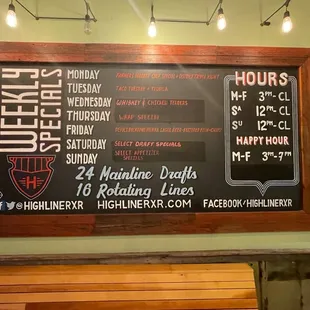 WEEKLY
SPECIALS
MONDAY
TUESDAY
WEDNESDAY WHISKEY &
THURSDAY WRAP SPECIAL
FRIDAY
SATURDAY SELECT DRAFT SPECIALS
SUNDAY SELECT APPETIZER
SPECIALS
24 Mainline Drafts
16 Rotating Lines
@HIGHLINERXR HIGHLINERXR.COM FACEBOOK/HIGHLINERXR
H
HOURS
M-F 3PM-CL
SA 12PM-CL
SU 12PM-CL
HAPPY HOUR
M-F 3PM-7PM